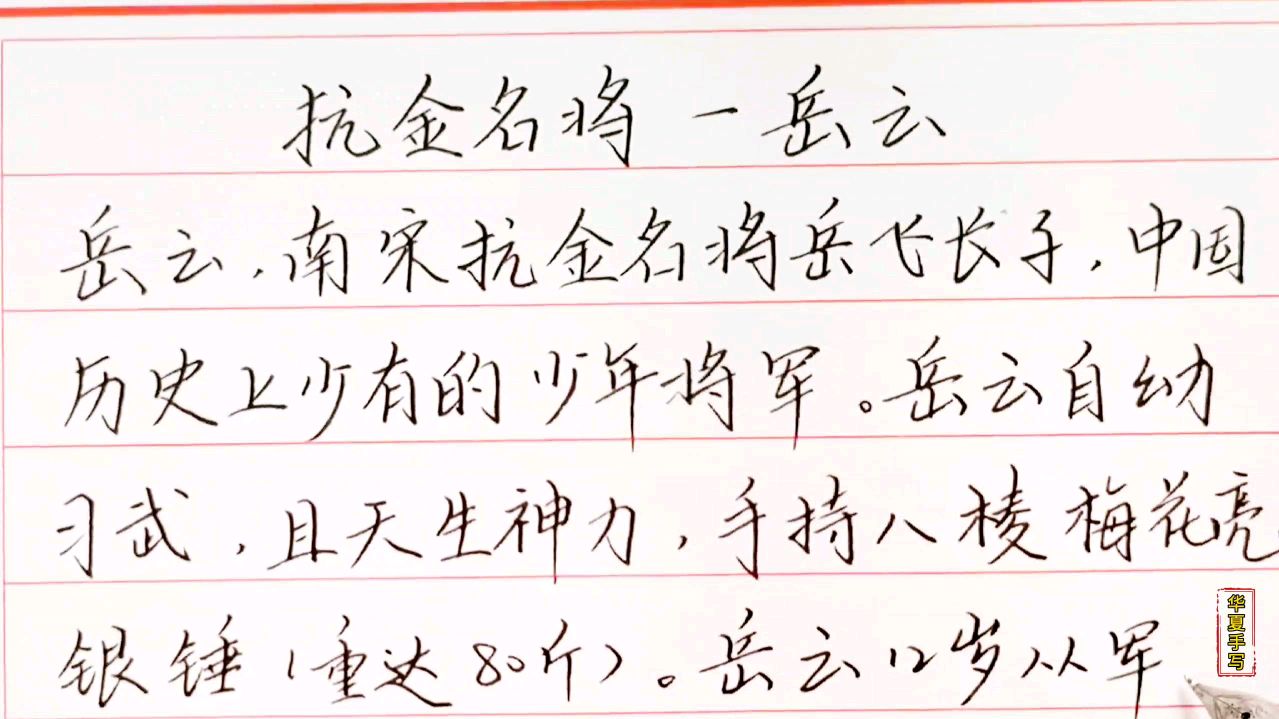 抗金名将－岳云
岳云，南宋抗金名将岳飞长子，中国
历史上少有的少年将军。岳云自幼
习武，且天生神力，手持八棱梅花亮
银锤（重达80斤）。岳云12岁从军
华夏手写